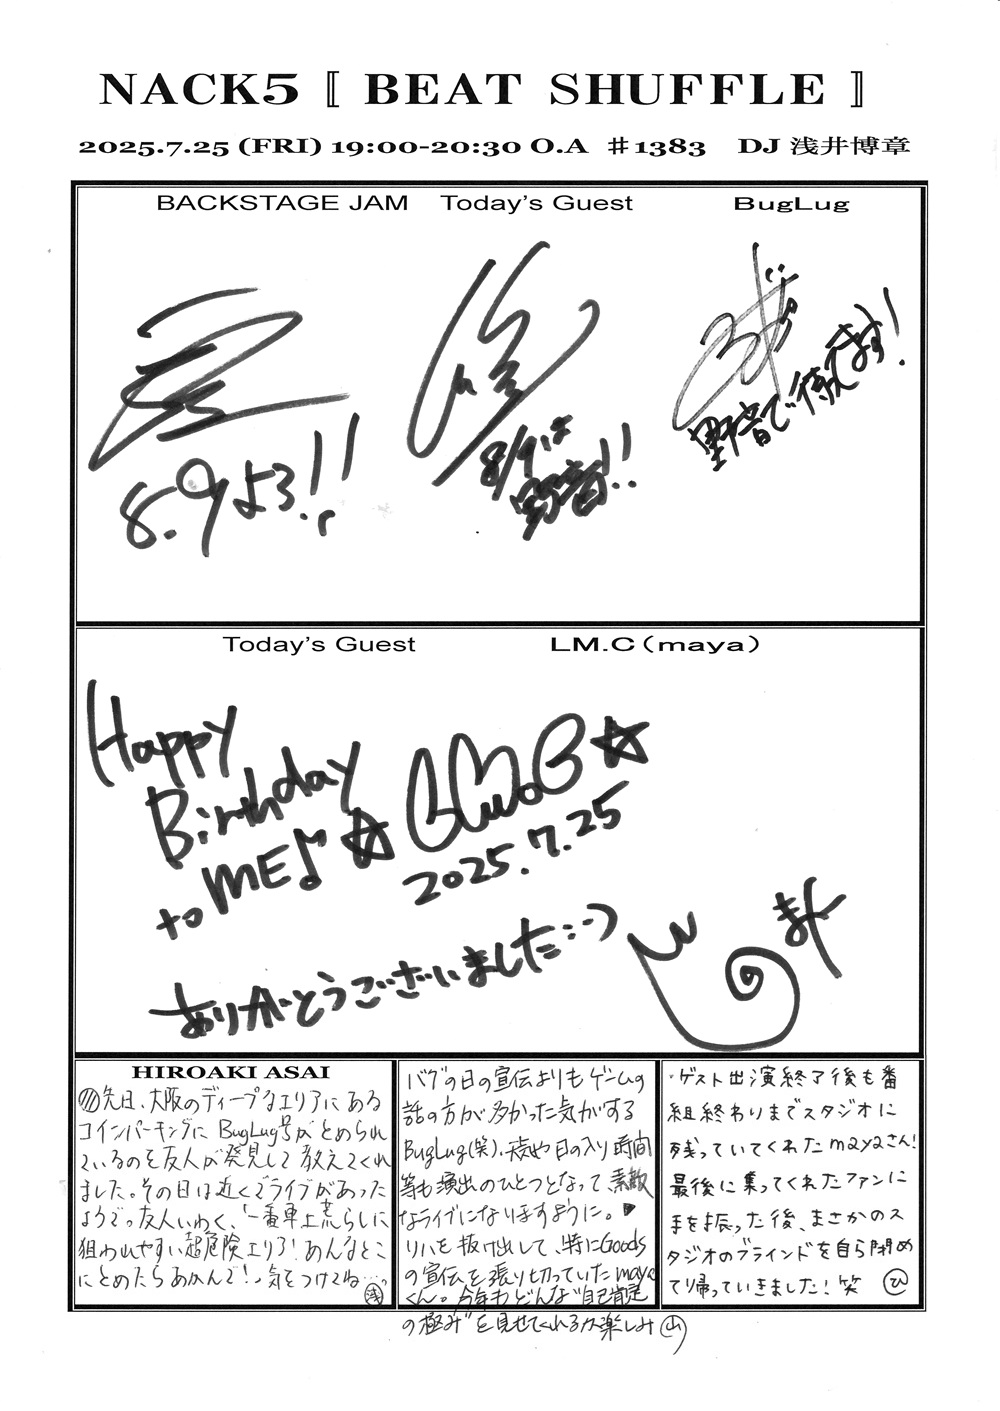 NACK5 〚 BEAT SHUFFLE 〛
2025.7.25 (FRI) 19:00-20:30 O.A ♯1383 DJ 浅井博章
BACKSTAGE JAM Today's Guest BugLug
8.9よろ!!
8/9は
野音!!
野音で待ってます!
Today's Guest LM.C（maya）
Happy
Birthday
to ME♪☆
2025.7.25
ありがとうございました:-)
まや
HIROAKI ASAI
先日、大阪のディープなエリアにある
コインパーキングに BugLug号がとめられ
ているのを友人が発見して教えてくれ
ました。その日は近くでライブがあった
ようでっ友人いわく、「一番車上荒らしに
狙われやすい超危険エリア!あんなとこ
にとめたらあかんで!」気をつけてね… 浅
バグの日の宣伝よりもゲームの
話の方が多かった気がする
BugLug(笑)、天気や日の入り時間
等も演出のひとつとなって、素敵
なライブになりますように。
リハを抜け出して、特にGoods
の宣伝を張り切っていたmaya
くん。今年もどんな"自己肯定
の極み"を見せてくれるか楽しみ 山
・ゲスト出演終了後も番
組終わりまでスタジオに
残っていてくれたmayaさん!
最後に集ってくれたファンに
手を振った後、まさかのス
タジオのブラインドを自ら閉め
て帰っていきました!笑 ひ